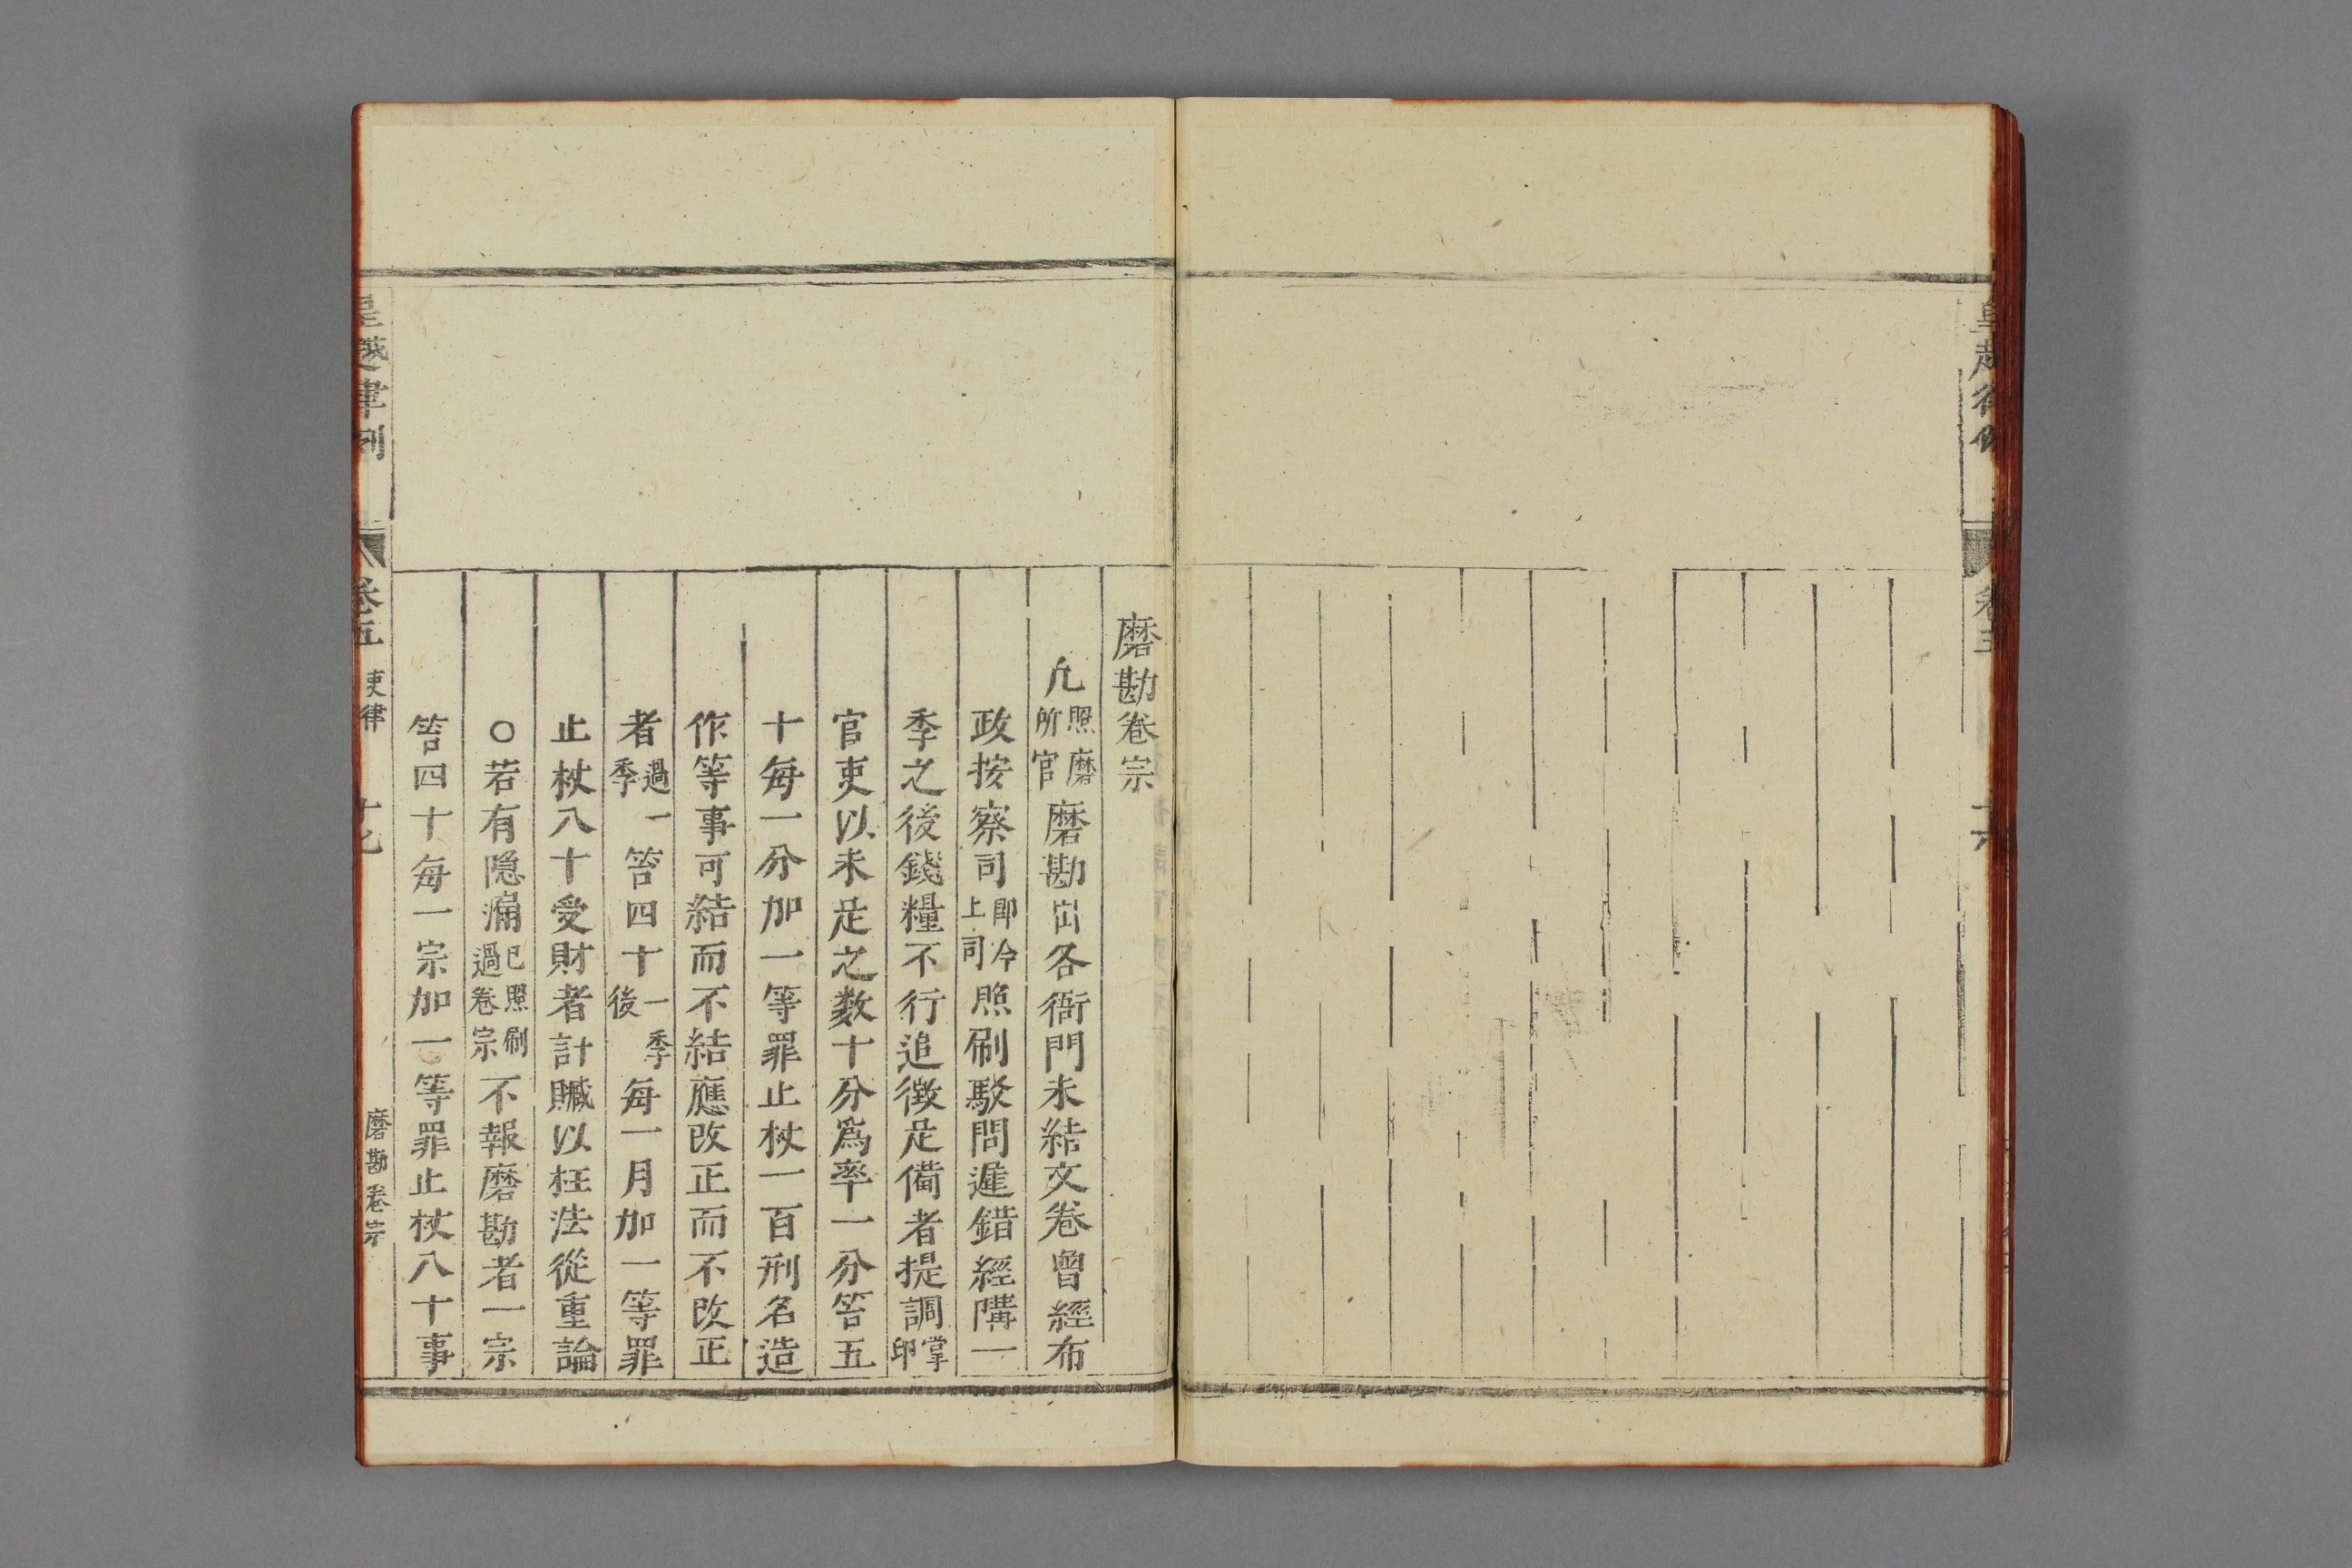 皇越律例
卷五
十六
磨勘卷宗
凢照磨所官磨勘出各衙門未結文卷曾經布
政按察司即今上司照刷駁問遲錯經隔一
季之後錢糧不行追徵足備者提調掌印
官吏以未足之数十分為率一分笞五
十每一分加一等罪止杖一百刑名造
作等事可結而不結應改正而不改正
者過一季笞四十一季後每一月加一等罪
止杖八十受財者計贓以枉法從重論
○若有隠漏已照刷過卷宗不報磨勘者一宗
笞四十每一宗加一等罪止杖八十事
皇越律例
卷五
吏律
十七
磨勘卷宗